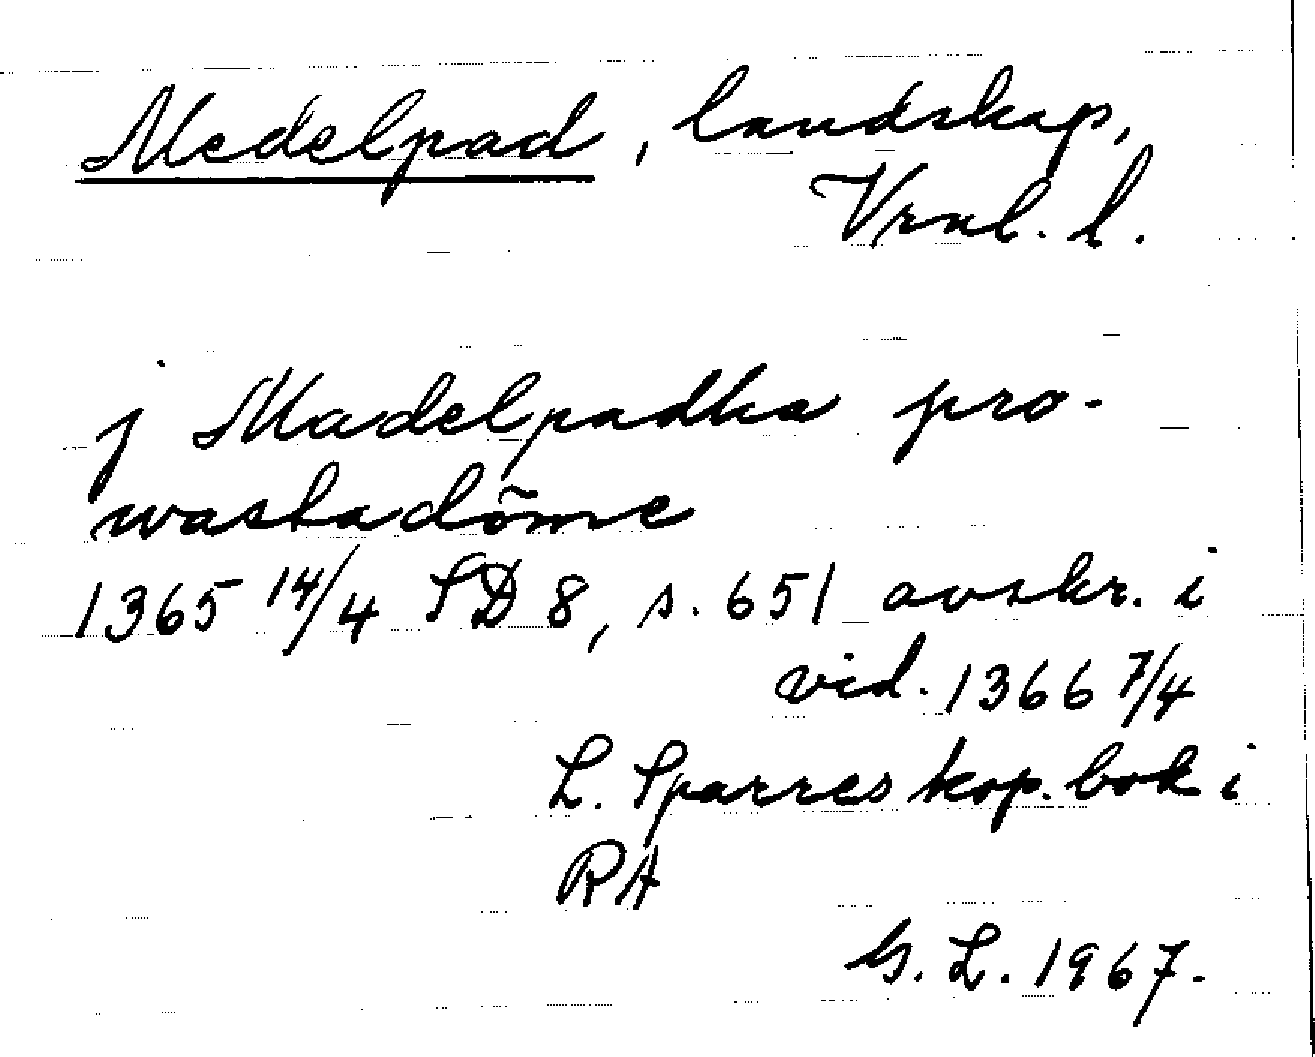 Medelpad, landskap,
Vrnl. l.
j Madelpadha pro-
wastadõme
1365 14/4 SD 8, s. 651 avskr. i
vid. 1366 7/4
L. Sparres kop.bok i
RA
G. L. 1967.